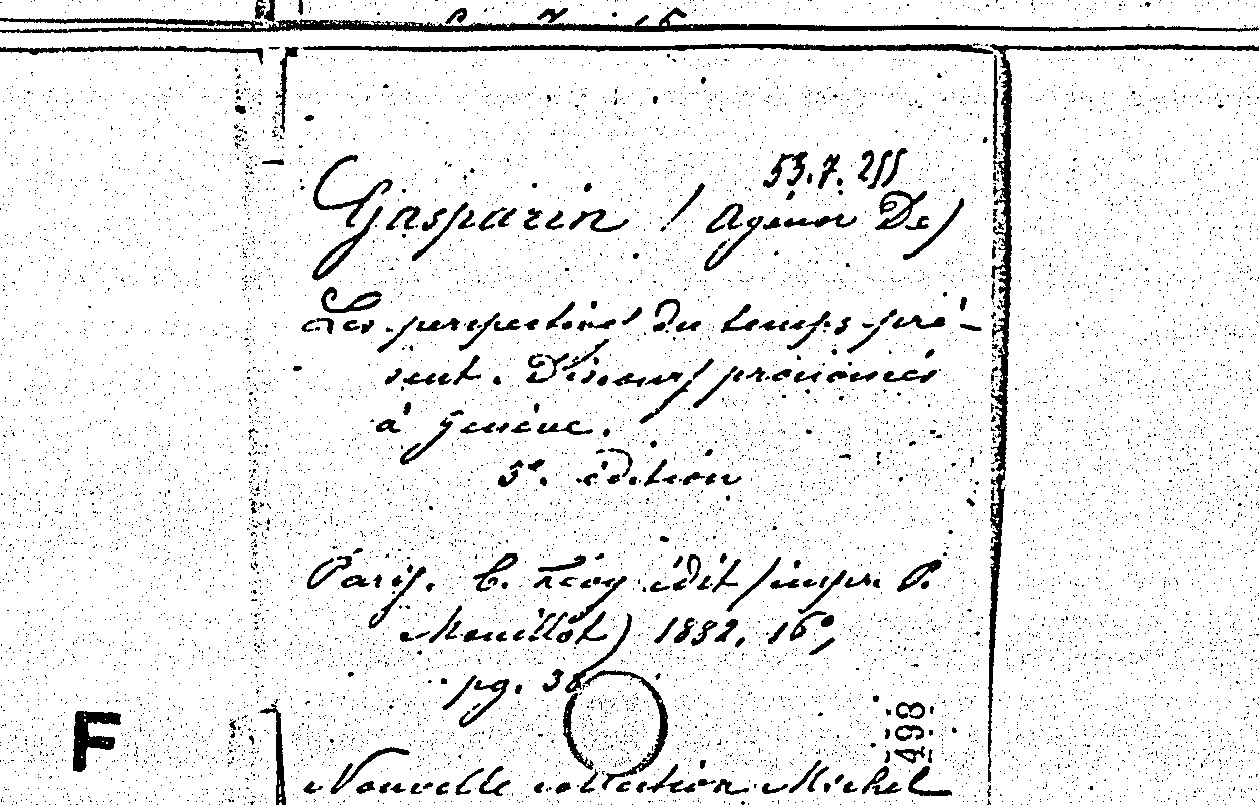 53.7.255
Gasparin (Agénor De)
Les perspectives du temps pré-
sent. Discours prononcés
à Genève.
5e. édition
Paris. C. Lévy édit (impr. P.
Mouillot) 1882, 16°,
pg. 36
498
F
Nouvelle collection Michel